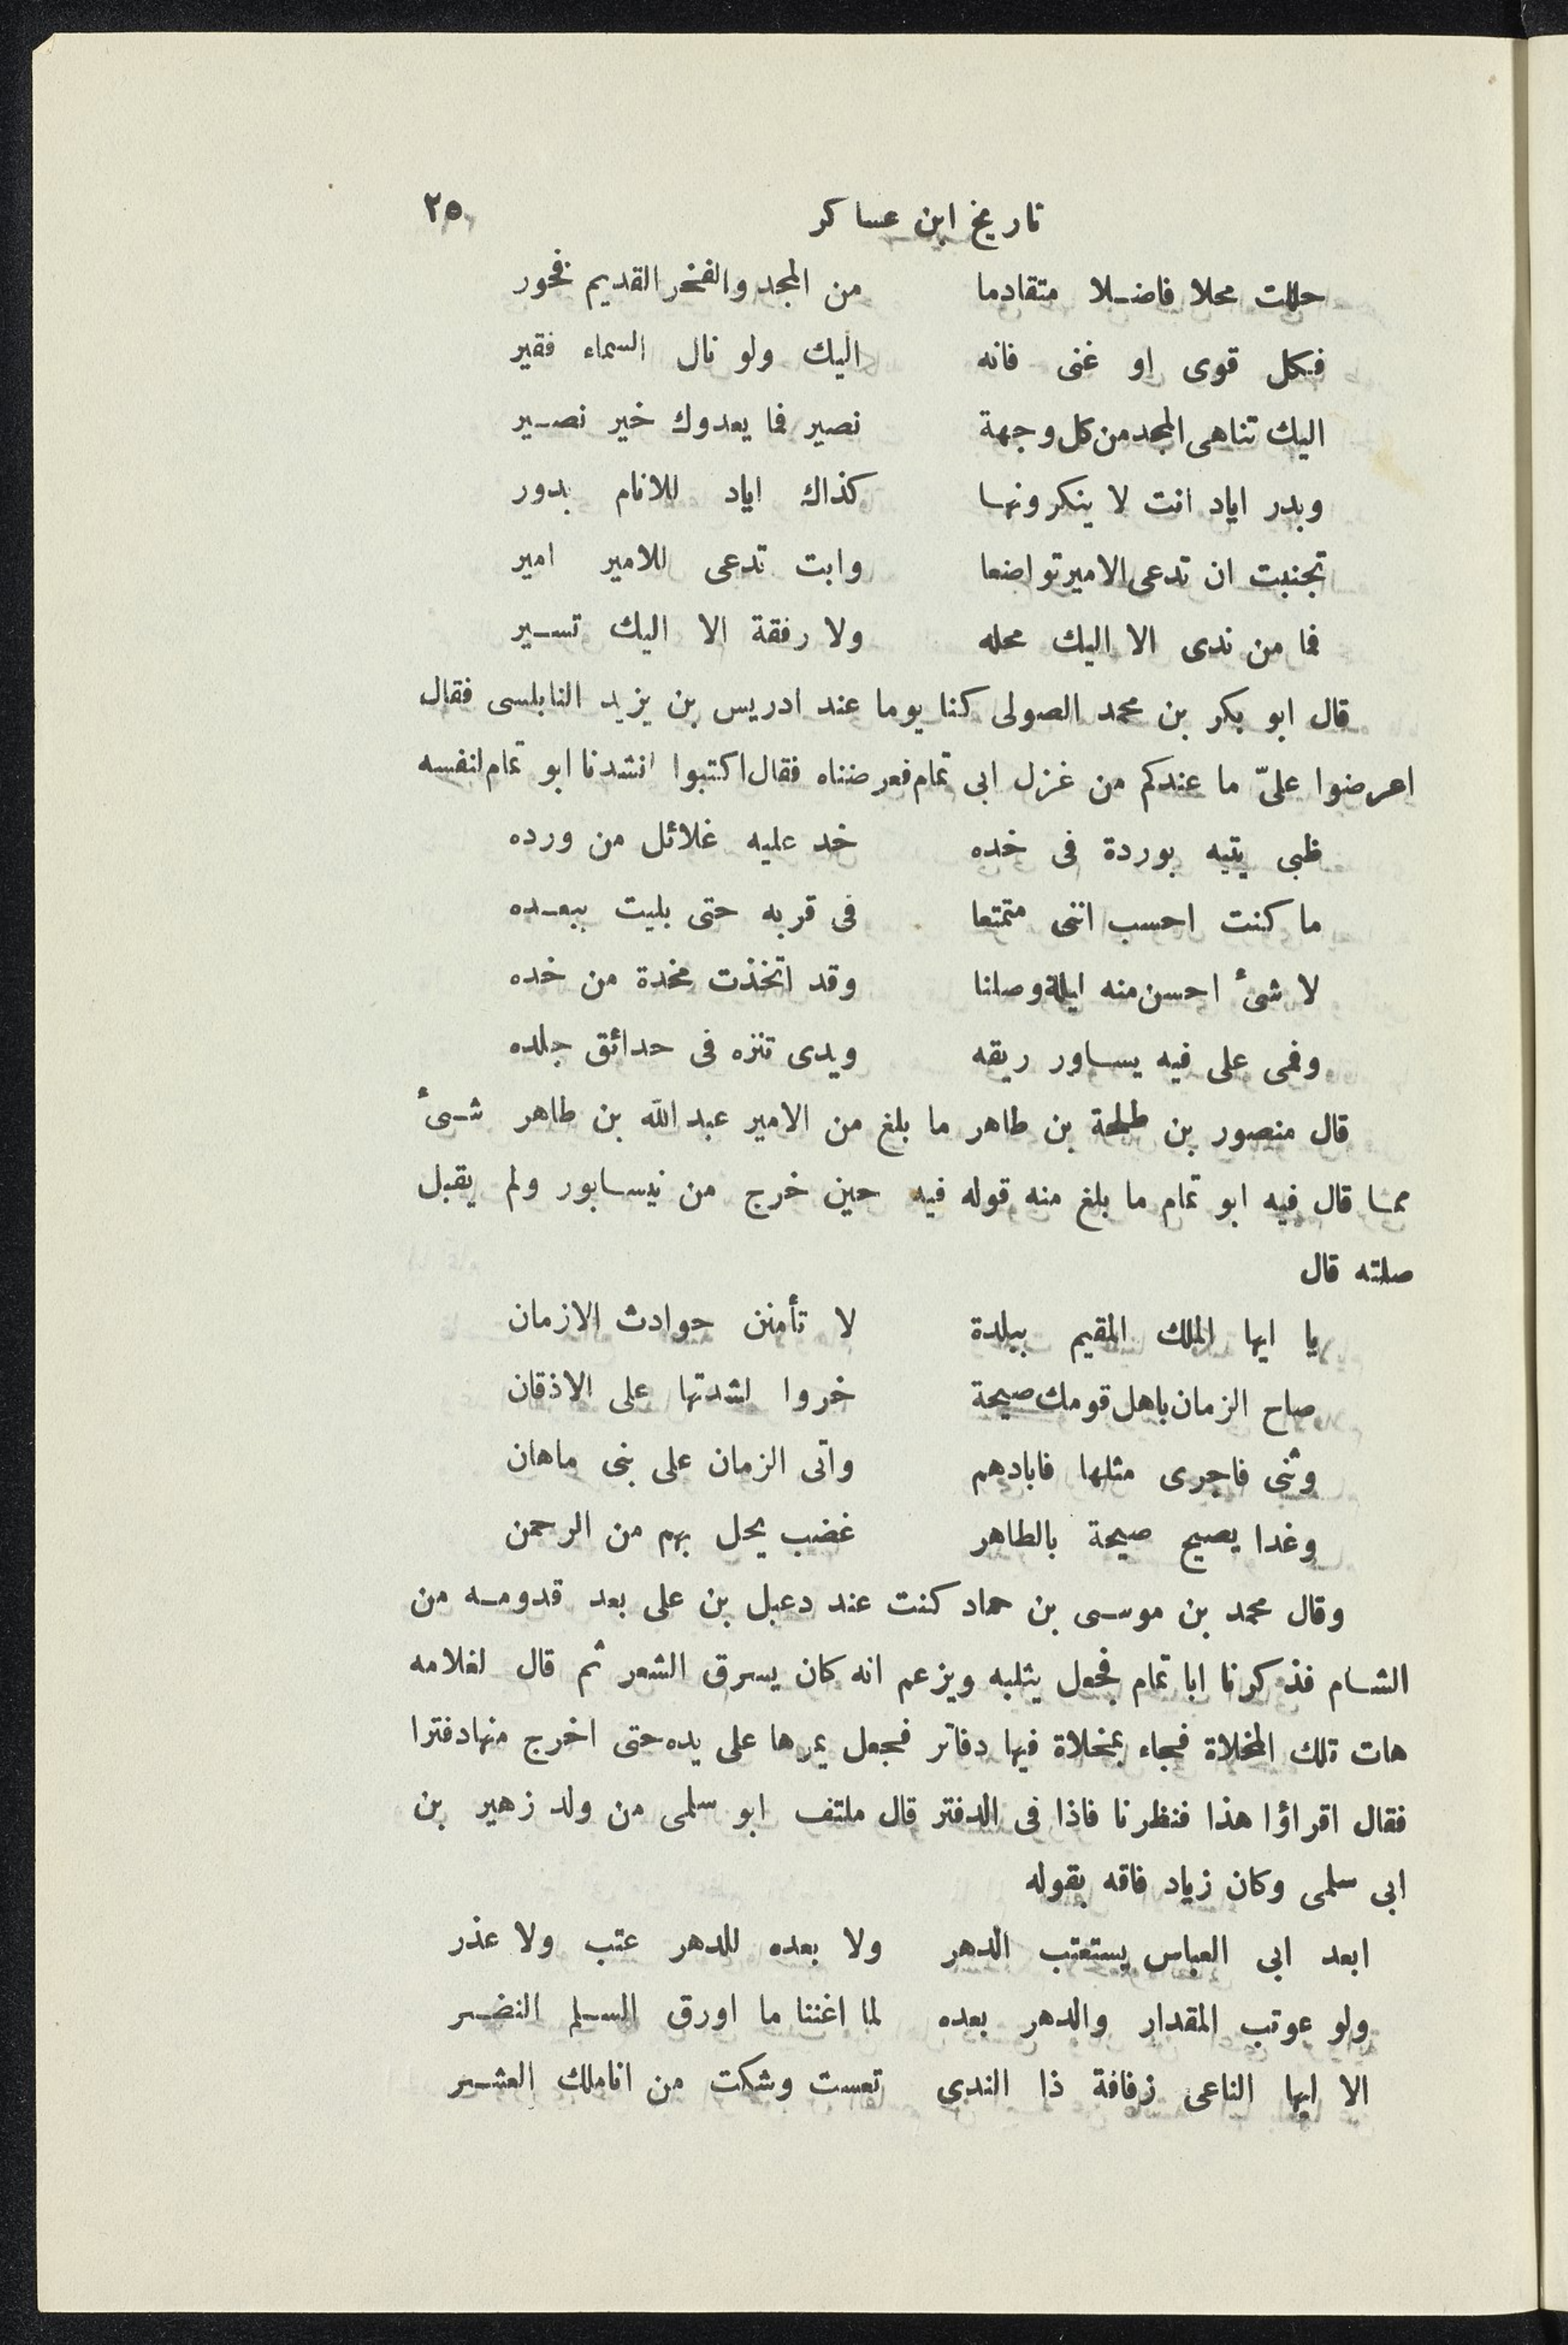 تاريخ ابن عساكر ٢٥
حللت محلا فاضلا متقادما من المجد والفخر القديم فخور
فكل قوى او غنى فانه اليك ولو نال السماء فقير
اليك تناهى المجد من كل وجهة نصير فما يعدوك خير نصير
وبدر اياد انت لا ينكرونها كذاك اياد للانام بدور
تجنبت ان تدعى الامير تواضعا وابت تدعى للامير امير
فما من ندى الا اليك محله ولا رفقة الا اليك تسير
قال ابو بكر بن محمد الصولى كنا يوما عند ادريس بن يزيد النابلسى فقال
اعرضوا علىّ ما عندكم من غزل ابى تمام فعرضناه فقال اكتبوا انشدنا ابو تمام لنفسه
ظبى يتيه بوردة فى خده خد عليه غلائل من ورده
ما كنت احسب اننى متمتعا فى قربه حتى بليت ببعده
لا شىٔ احسن منه ليلة وصلنا وقد اتخذت مخدة من خده
وفمى على فيه يساور ريقه ويدى تنزه فى حدائق جلده
قال منصور بن طلحة بن طاهر ما بلغ من الامير عبد الله بن طاهر شىٔ
مما قال فيه ابو تمام ما بلغ منه قوله فيه حين خرج من نيسابور ولم يقبل
صلته قال
يا ايها الملك المقيم ببلدة لا تأمنن حوادث الازمان
صاح الزمان باهل قومك صيحة خروا لشدتها على الاذقان
وثنى فاجرى مثلها فابادهم واتى الزمان على بنى ماهان
وغدا يصيح صيحة بالطاهر غضب يحل بهم من الرحمن
وقال محمد بن موسى بن حماد كنت عند دعبل بن على بعد قدومه من
الشام فذكرنا ابا تمام فجعل يثلبه ويزعم انه كان يسرق الشعر ثم قال لغلامه
هات تلك المخلاة فجاء بمخلاة فيها دفاتر فجعل يمرها على يده حتى اخرج منها دفترا
فقال اقراؤا هذا فنظرنا فاذا فى الدفتر قال ملتف ابو سلمى من ولد زهير بن
ابى سلمى وكان زياد فاقه بقوله
ابعد ابى العباس يستعتب الدهر ولا بعده للدهر عتب ولا عذر
ولو عوتب المقدار والدهر بعده لما اغننا ما اورق السلم النضر
الا ايها الناعى زفافة ذا الندى تعست وشكت من اناملك العشر